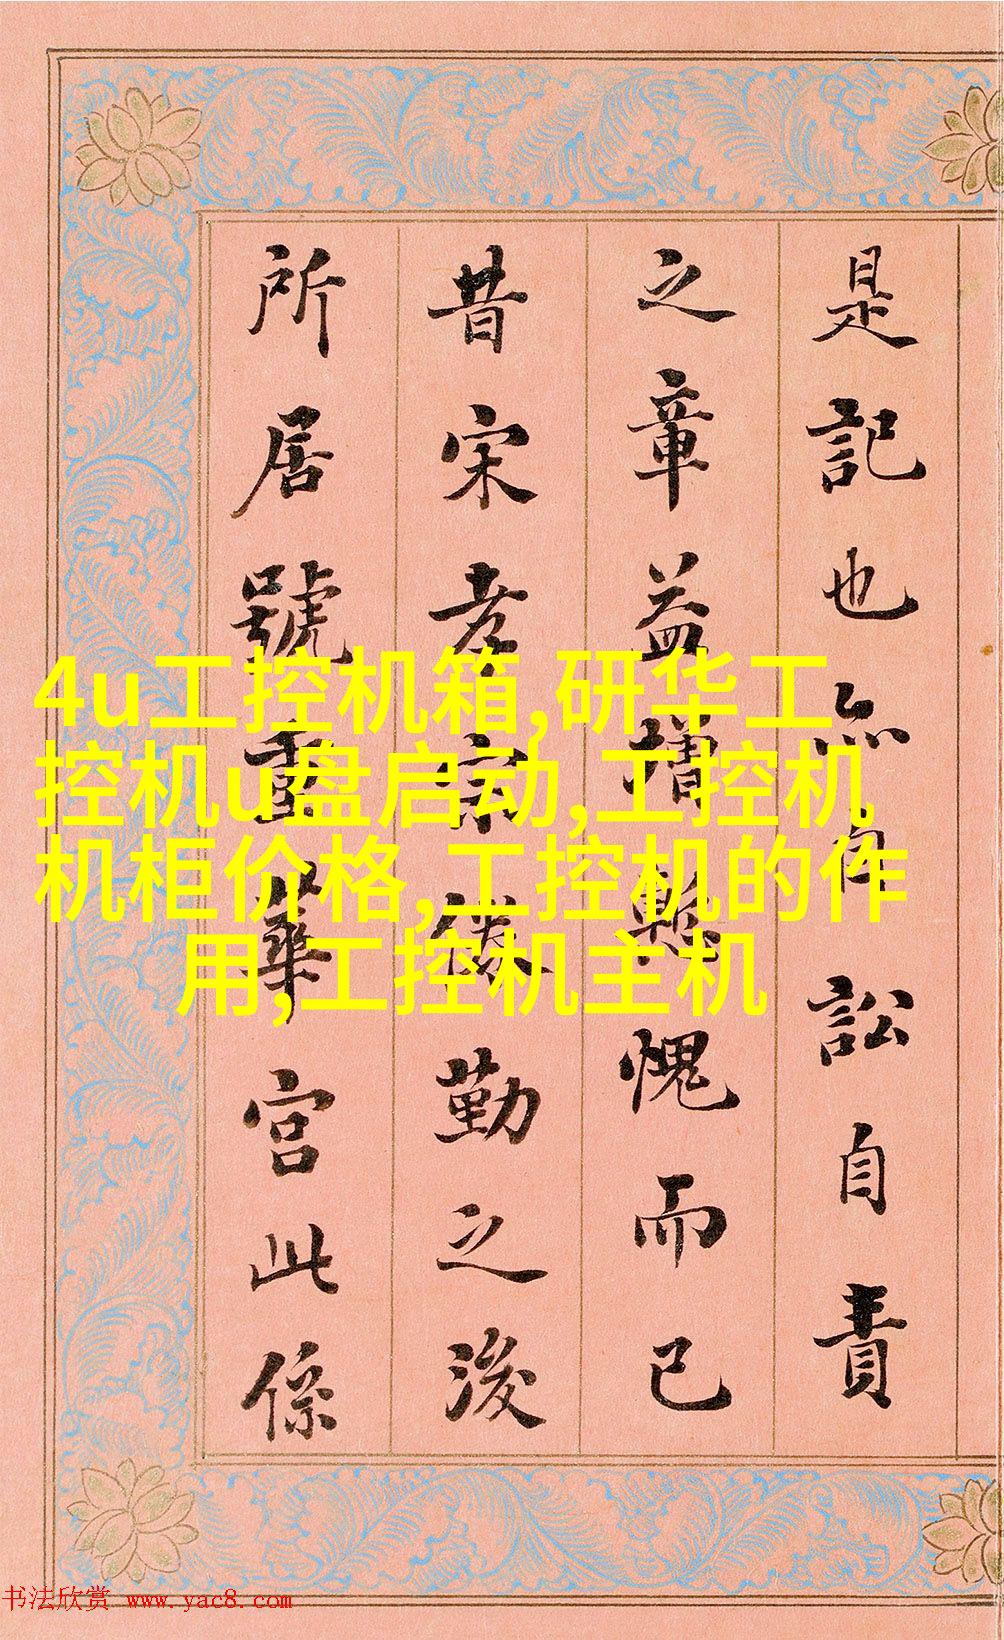 是記也亦内訟自責
之章益增慙愧而已
昔宋孝宗倦勤之後
所居號重華宮此係
4u工控机箱,研华工
控机u盘启动,工控机
机柜价格,工控机的作
用,工控机主机
书法欣赏 www.yac8.com